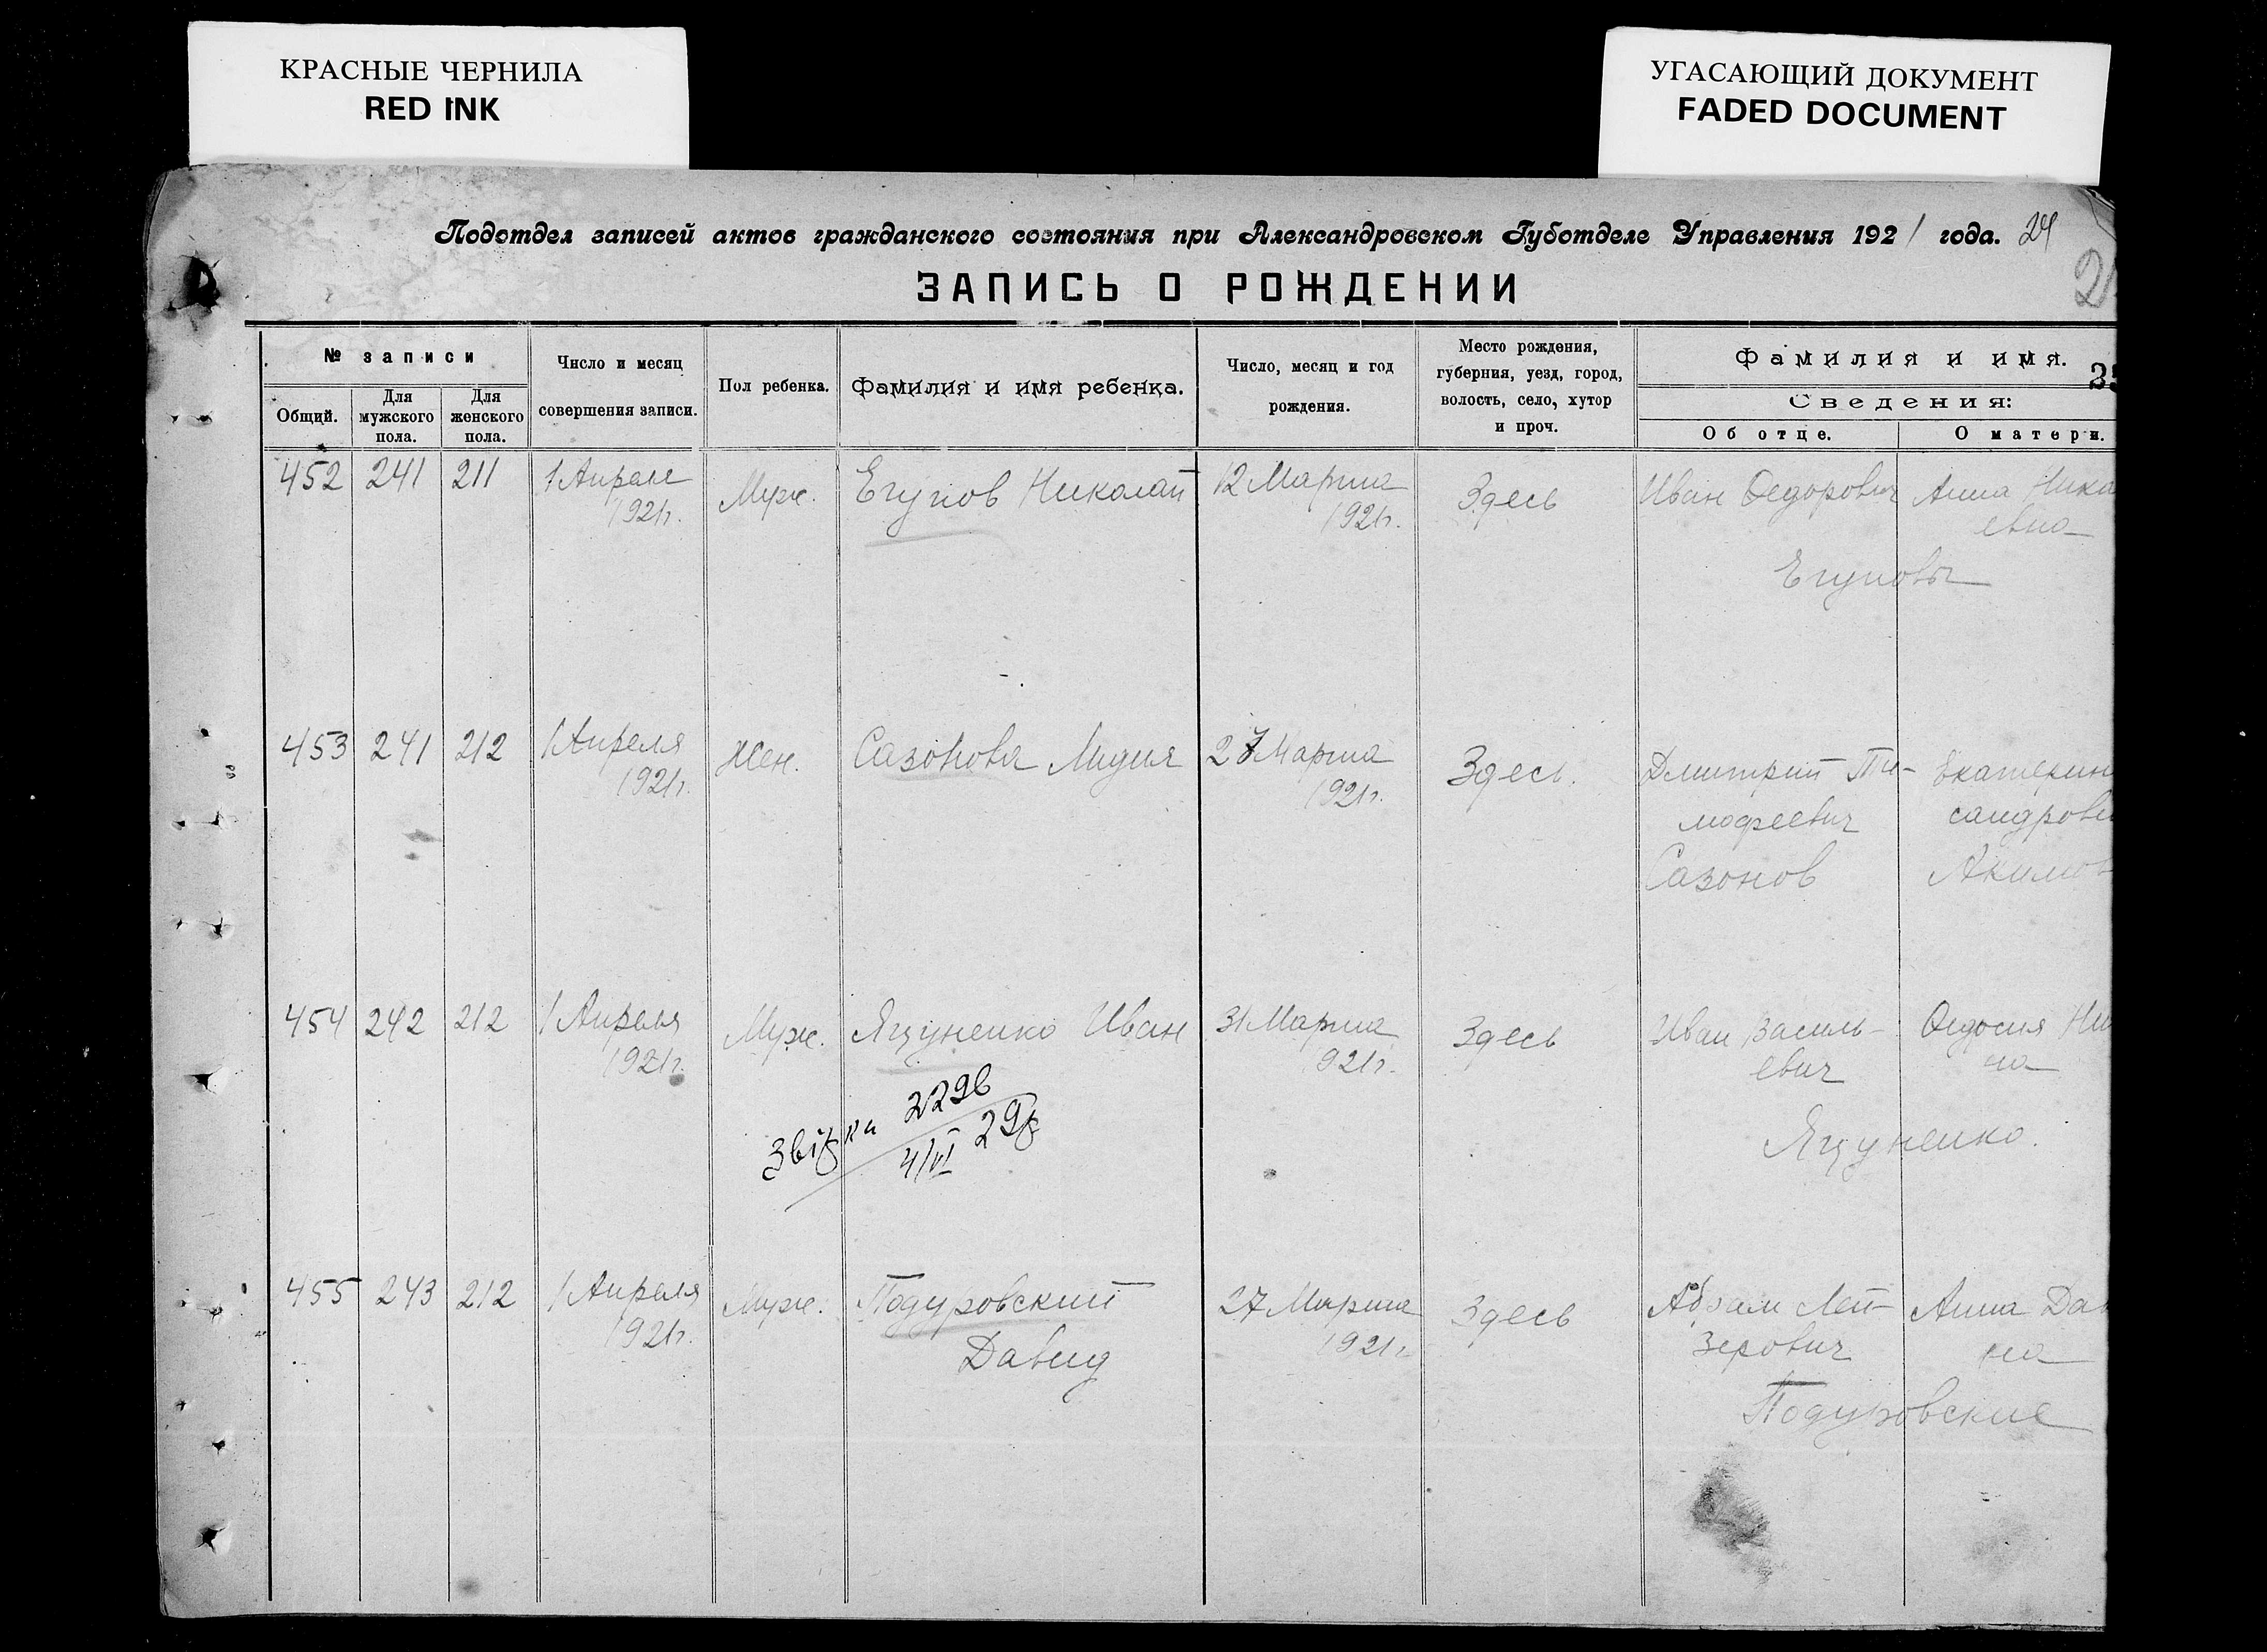 КРАСНЫЕ ЧЕРНИЛА
RED INK
УГАСАЮЩИЙ ДОКУМЕНТ
FADED DOCUMENT
Подотдел записей актов гражданского состояния при Александровском Губотделе Управления 1921 года. 24
ЗАПИСЬ О РОЖДЕНИИ
№ записи
Общий.
Для
мужского
пола.
Для
женского
пола.
Число и месяц
совершения записи.
Пол ребенка.
Фамилия и имя ребенка.
Число, месяц и год
рождения.
Место рождения,
губерния, уезд, город,
волость, село, хутор
и проч.
Фамилия и имя.
Сведения:
Об отце.
О матери.
452 241 211 1 Апреля
1921г.
Муж.
Егупов Николай
12 Марта
1921г.
Здесь
Иван Федорович
Анна Нико
евна
Егуповы
453 241 212 1 Апреля
1921г.
Жен.
Сазонова Лидия
27 Марта
1921г.
Здесь.
Дмитрий Ти-
мофеевич
Сазонов
Екатерин
сандров
Акимов
454 242 212 1 Апреля
1921г.
Муж.
Яцуненко Иван
31 Марта
1921г.
Здесь
Иван Василь-
евич
Федосия Ни
на
Яцуненко.
2296
4/VI 29
455 243 212 1 Апреля
1921г.
Муж.
Подуровский
Давид
27 Марта
1921г.
Здесь
Абрам Лей-
зерович
Анна Дав
на
Подуровские